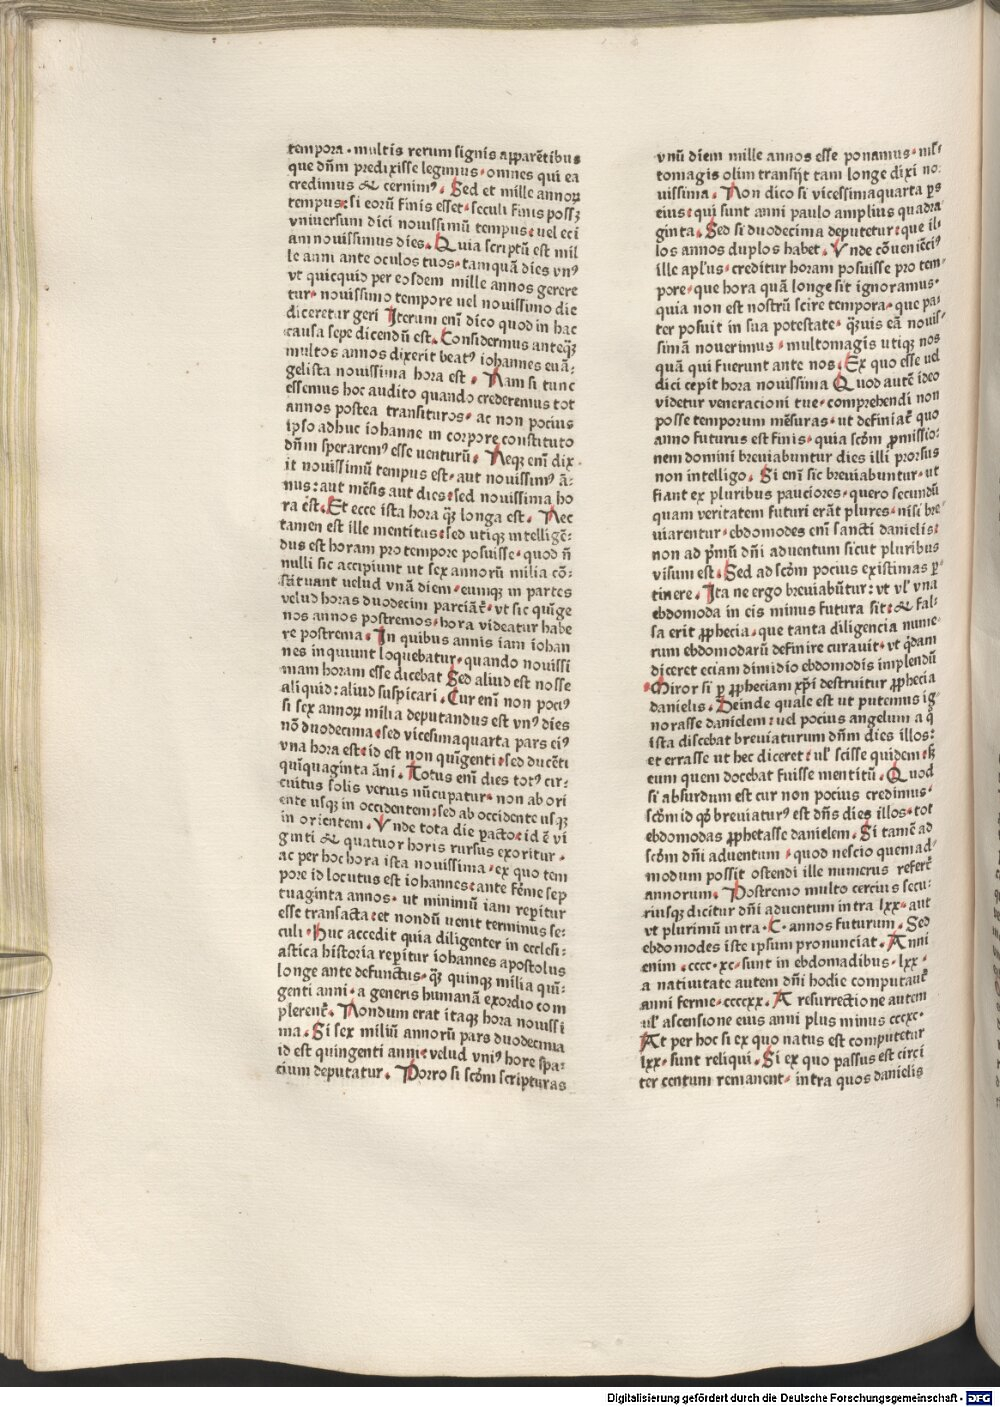 tempora · multis rerum signis apparētibus
que dn̄m predixisse legimus · omnes qui ea
credimus & cernimꝰ . Sed et mille annoꝝ
tempus: si eorū finis esset · seculi finis possꝫ
vniversum dici nouissimū tempus: uel eci
am nouissimus dies . Quia scriptū est mil
le anni ante oculos tuos · tamquā dies vnꝰ
vt quicquid per eosdem mille annos gerere
tur · nouissimo tempore uel nouissimo die
diceretur geri Iterum enī dico quod in hac
causa sepe dicendū est . Considermus anteqꝫ
multos annos dixerit beatꝰ iohannes euā-
gelista nouissima hora est . Nam si tunc
essemus hoc audito quando crederemus tot
annos postea transituros · ac non pocius
ipso adhuc iohanne in corpore constituto
dn̄m speraremꝰ esse uenturū . Neqꝫ enī dix
it nouissimū tempus est · aut nouissimꝰ ā-
nus: aut mēsis aut dies: sed nouissima ho
ra est . Et ecce ista hora qꝫ longa est . Nec
tamen est ille mentitus: sed utiqꝫ intelligē-
dus est horam pro tempore posuisse · quod n̄
nulli sic accipiunt ut sex annorū milia cō-
stituant velud vnā diem · eumqꝫ in partes
velud horas duodecim parciāt · vt sic quīge
nos annos postremos · hora videatur habe
re postrema . In quibus annis iam iohan
nes inquiunt loquebatur · quando nouissi
mam horam esse dicebat Sed aliud est nosse
aliquid: aliud suspicari . Cur enī non pociꝰ
si sex annoꝝ milia deputandus est vnꝰ dies
nō duodecima: sed vicesimaquarta pars eiꝰ
vna hora est: id est non quīgenti: sed ducēti
quīquaginta āni . Totus enī dies totꝰ cir-
cuitus solis verius nūcupatur · non ab ori
ente usqꝫ in occidentem: sed ab occidente usqꝫ
in orientem . Vnde tota die pacto: id ē vi
ginti & quatuor horis rursus exoritur .
ac per hoc hora ista nouissima · ex quo tem
pore id locutus est iohannes: ante ferme sep
tuaginta annos · ut minimū iam reperitur
esse transacta: et nondū uenit terminus se-
culi · Huc accedit quia diligenter in ecclesi-
astica historia reperitur iohannes apostolus
longe ante defunctus · qꝫ quinqꝫ milia quī-
genti anni · a generis humanā exordio com
plerent . Nondum erat itaqꝫ hora nouissi
ma . Si sex miliū annorū pars duodecima
id est quingenti anni: velud vniꝰ hore spa-
cium deputatur . Porro si scd̄m scripturas
vnū diem mille annos esse ponamus · ml-
tomagis olim transijt tam longe dixi no-
uissima . Non dico si vicessimaquarta ps
eius: qui sunt anni paulo amplius quadra
ginta . Sed si duodecima deputetur: que il-
los annos duplos habet . Vnde cōueniēciꝰ
ille aplus · creditur horam posuisse pro tem-
pore · que hora quā longe sit ignoramus ·
quia non est nostrū scire tempora · que pa-
ter posuit in sua potestate · qꝫuis eā nouis-
simā nouerimus · multomagis utiqꝫ nos
quā qui fuerunt ante nos . Ex quo esse uel
dici cepit hora nouissima Quod autē ideo
videtur veneracioni tue · comprehendi non
posse temporum mēsuras · ut definiat quo
anno futurus est finis · quia scd̄m ꝓmissio-
nem domini breviabuntur dies illi prorsus
non intelligo . Si enī sic breviabuntur · ut
fiant ex pluribus pauciores · quero secundū
quam veritatem futuri erāt plures · nisi bre
viarentur · ebdomodes enī sancti danielis:
non ad pmū dn̄i aduentum sicut pluribus
visum est . Sed ad scd̄m pocius existimas p̱
tinere . Ita ne ergo breviabūtur: vt vl vna
ebdomoda in eis minus futura sit: & fal-
sa erit ꝓphecia · que tanta diligencia nume-
rum ebdomodarū definire curauit · vt qdam
diceret eciam dimidio ebdomodis implendū
Miror si p̱ ꝓpheciam xp̄i destruitur ꝓphecia
danielis . Deinde quale est ut putemus ig-
norasse danielem: uel pocius angelum a q̊
ista discebat breviaturum dn̄m dies illos:
et errasse ut hec diceret: ul scisse quidem: sꝫ
eum quem docebat fuisse mentitū . Quod
si absurdum est cur non pocius credimus ·
scd̄m id qd breviaturꝰ est dn̄s dies illos · tot
ebdomodas ꝓphetasse danielem . Si tamē ad
scd̄m dn̄i aduentum · quod nescio quemad-
modum possit ostendi ille numerus refert
annorum . Postremo multo cercius secu-
riusqꝫ dicitur dn̄i aduentum intra lxx · aut
vt plurimū intra · C · annos futurum . Sed
ebdomodes iste ipsum pronunciat . Anni
enim · cccc · xc · sunt in ebdomadibus · lxx ·
a natiuitate autem dn̄i hodie computant
anni ferme · ccccxx . A resurrectione autem
ul ascensione eius anni plus minus cccxc ·
At per hoc si ex quo natus est computetur
lxx · sunt reliqui . Si ex quo passus est circi
ter centum remanent · intra quos danielis
Digitalisierung gefördert durch die Deutsche Forschungsgemeinschaft - DFG